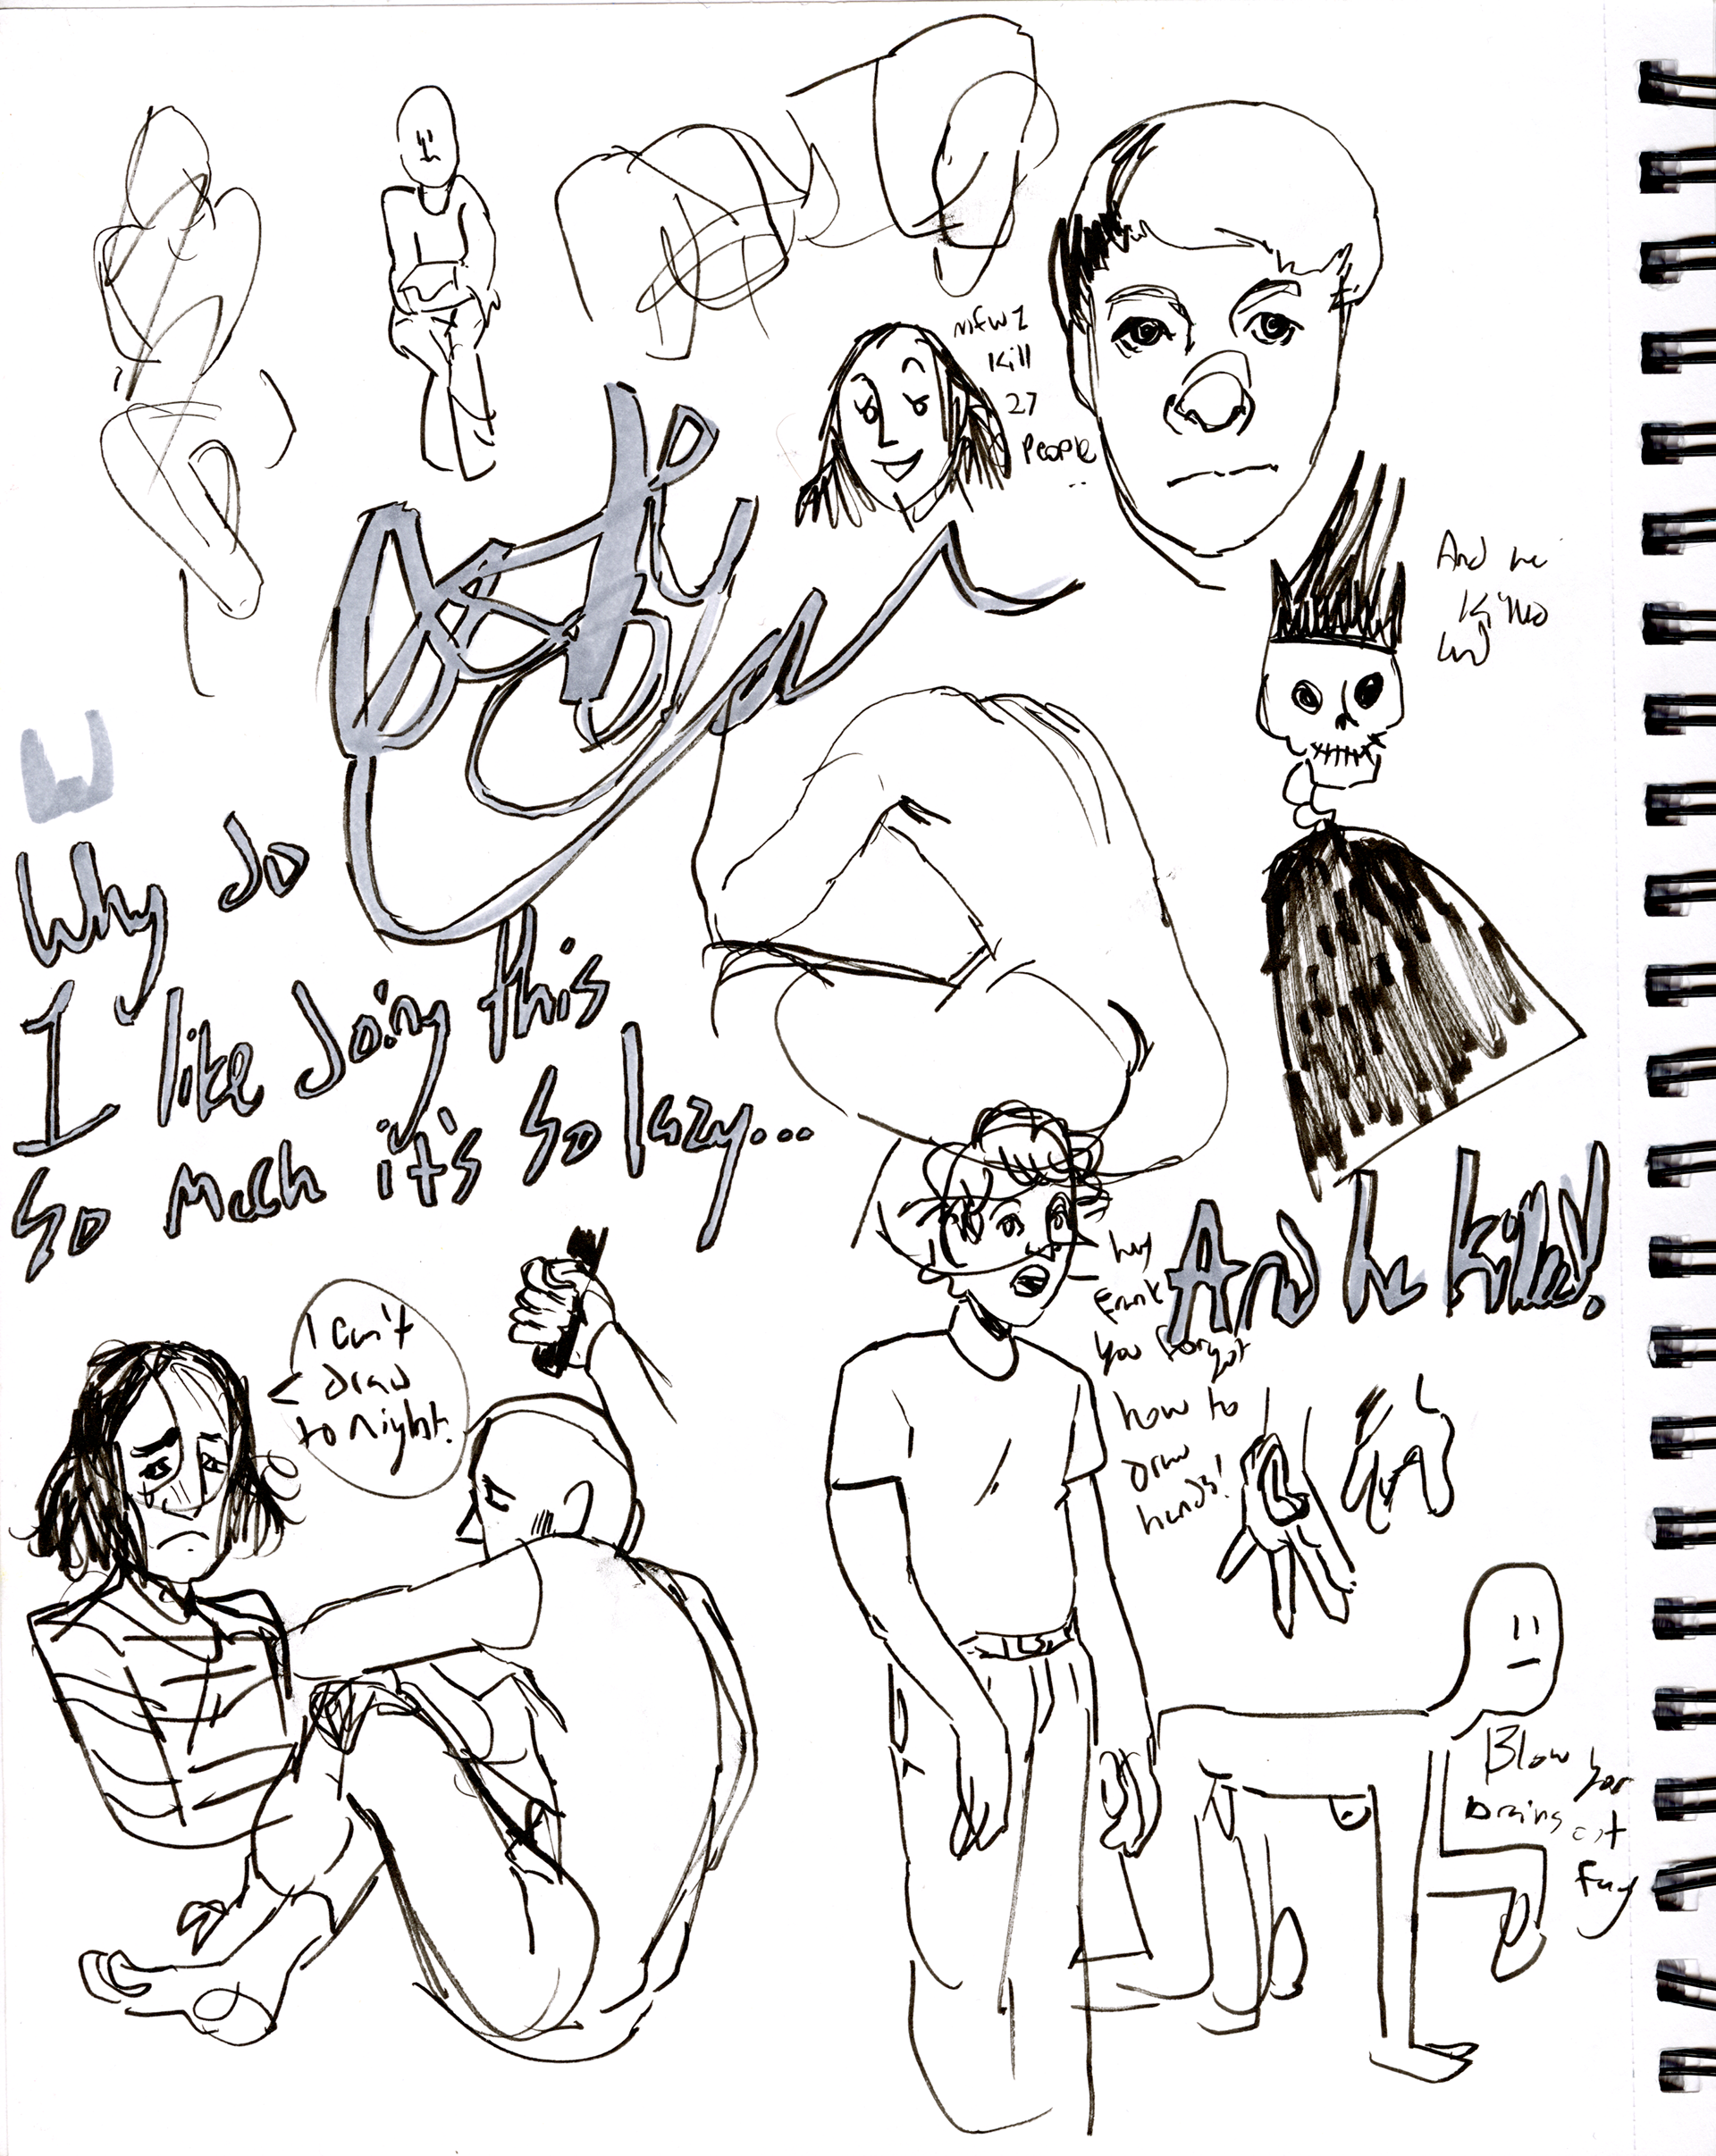 mfw I
Kill
27
People
And he
Killed
Why do
I like doing this
so much it's so lazy...
And he killed!
hey
Frank
you forgot
how to
draw
hands!
I can't
draw
to night.
Blow your
brains out